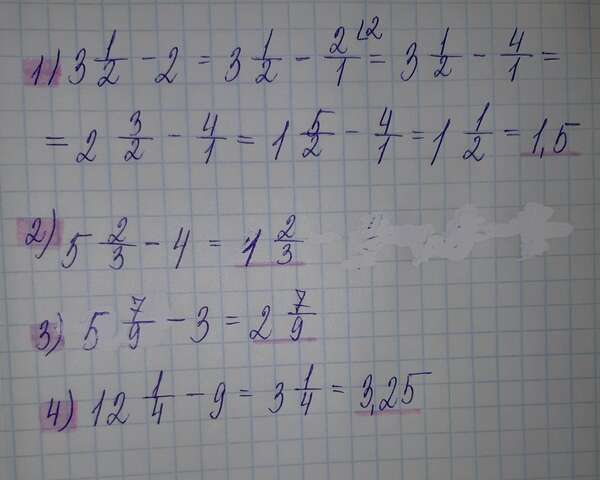 1) 3 1/2 - 2 = 3 1/2 - 2/1 ⌊2 = 3 1/2 - 4/1 =
= 2 3/2 - 4/1 = 1 5/2 - 4/1 = 1 1/2 = 1,5
2) 5 2/3 - 4 = 1 2/3
3) 5 7/9 - 3 = 2 7/9
4) 12 1/4 - 9 = 3 1/4 = 3,25